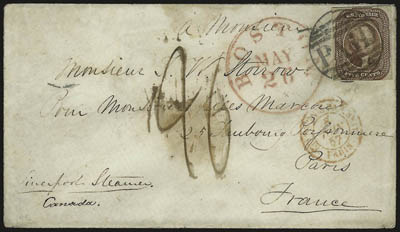 A Monsieur
Monsieur J. W. Storrow
Pour Monsieur Jules Marcou
25 Faubourg Poissonniere
Paris
France
Liverpool Steamer
Canada.
BOSTON
MAY
FIVE CENTS
PARIS